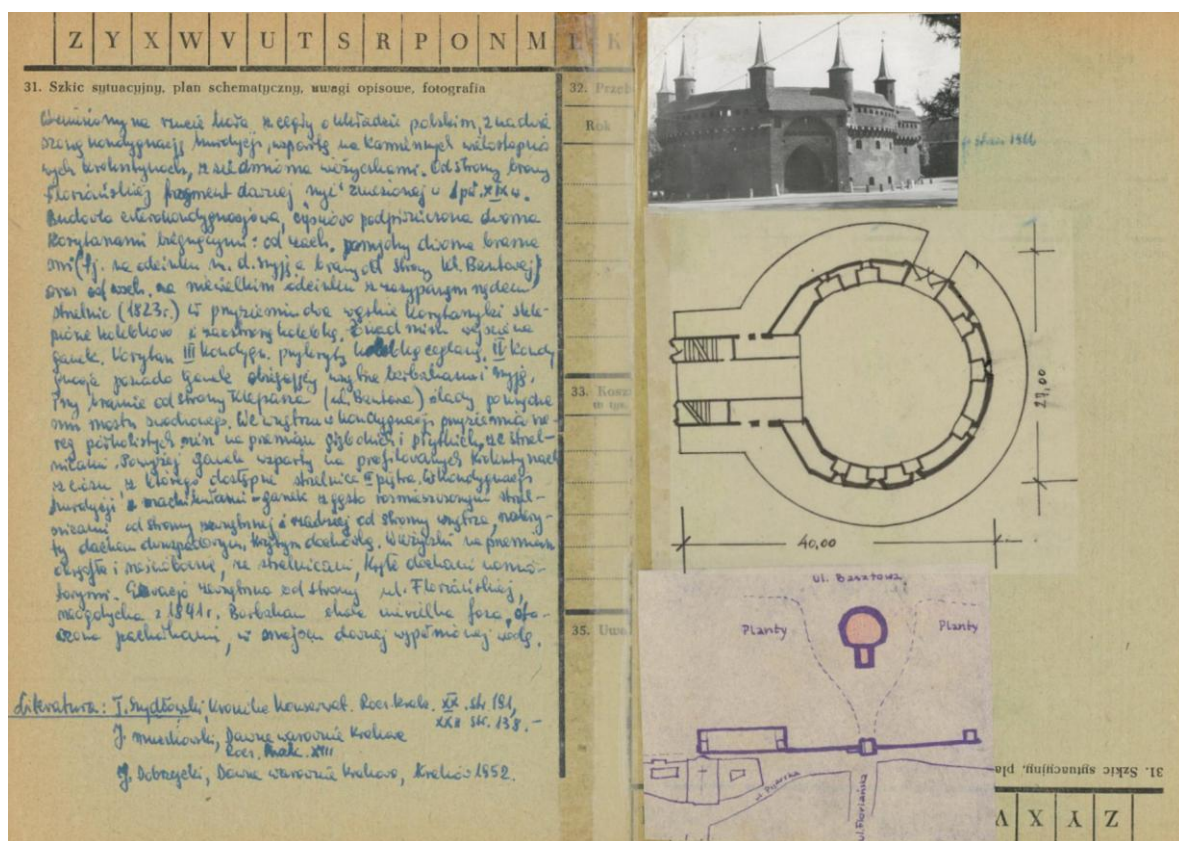 Z Y X W V U T S R P O N M L K
31. Szkic sytuacyjny, plan schematyczny, uwagi opisowe, fotografia
32. Przeb
Rok
33. Kosz
w tys.
35. Uwa
Wzniesiony na rzucie koła z cegły o układzie polskim, z nadwie
szoną kondygnacją hurdycji, wspartą na kamiennych wielostopnio
wych kroksztynach, z siedmioma wieżyczkami. Od strony bramy
Floriańskiej fragment dawnej szyi zniesionej w 1 poł. XIX w.
Budowla czterokondygnacjowa, częściowo podpiwniczona dwoma
korytarzami biegnącymi: od zach. pomiędzy dwoma brama
mi (tj. na odcinku m. d. szyją a bramą od strony ul. Basztowej)
oraz od wsch. na niewielkim odcinku z zasypanym rzędem
strzelnic (1823 r.) W przyziemiu dwa wąskie korytarzyki skle-
pione kolebkowo i zaostrzoną kolebką. Ponad nimi wejście na
ganek. Korytarz III kondygn. przykryty kolebką ceglaną. II kondy
gnacja posiada ganek obiegający wnętrze barbakanu i szyję.
Przy bramie od strony Kleparza (ul. Basztowa) ślady po
moście zwodzonego. We wnętrzu w kondygnacji przyziemia sze-
reg półkolistych nisz na przemian głębokich i płytkich, ze strzel-
nicami. Powyżej ganek wsparty na profilowanych kroksztynach
z ciosu, z którego dostępne strzelnice II piętra. W kondygnacji
hurdycji z machikułami - ganek z gęsto rozmieszczonymi strzel-
nicami od strony zewnętrznej i rzadziej od strony wnętrza, nakry-
ty dachem dwuspadowym, krytym dachówką. Wieżyczki na przemian
okrągłe i sześcioboczne, ze strzelnicami, kryte dachami namio-
towymi. Elewacja zewnętrzna od strony ul. Floriańskiej,
neogotycka z 1841 r. Barbakan okala niewielka fosa, oto-
czona pachołkami, w miejscu dawnej wypełnionej wodą.
Literatura: T. Szydłowski, Kronika konserwat. Rocz. krak. XX. str 181,
XXI str. 138. -
J. Muczkowski, Dawne warownie Krakowa
Rocz. Krak. XIII
J. Dobrzycki, Dawne warownie Krakowa, Kraków 1952.
1966
27,00
40,00
ul. Basztowa
Planty
Planty
ul. Pijarska
ul. Floriańska
31. Szkic sytuacyjny, pla
Z Y X W